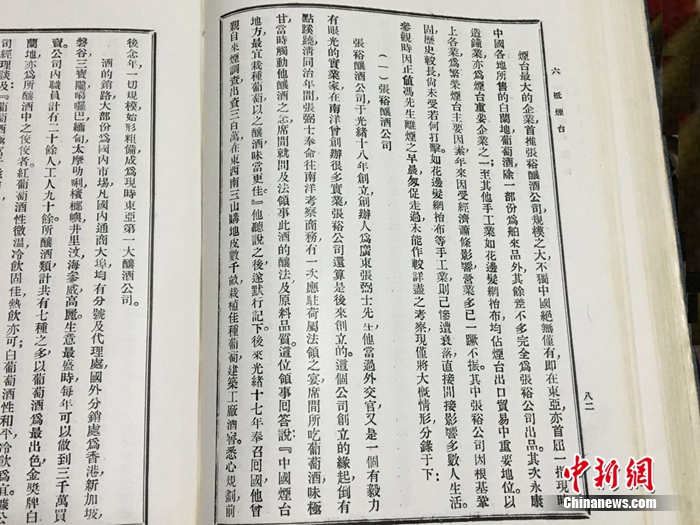 六　抵煙台
八二
煙台最大的企業首推張裕釀酒公司規模之大不獨中國絕無僅有卽在東亞亦首屈一指現時
中國各地所售的白蘭地葡萄酒除一部份爲舶來品外其餘差不多完全爲張裕公司出品其次永康
造鐘業亦爲煙台重要企業之一至其他手工業如花邊髮網枱布均佔煙台出口貿易中重要地位以
上各業爲繁業煙台主要因素年來因受經濟蕭條影響營業多已一蹶不振其中張裕公司因根基鞏
固歷史較長尙未受若何打擊如花邊髮網枱布等手工業則已慘遭衰落直接間接影響多數人生活
參觀時因正値馮先生離煙之早晨匆促走過未能作較詳盡之考察現僅將大槪情形分錄于下：
（一）張裕釀酒公司
張裕釀酒公司于光緒十八年創立創辦人爲廣東張弼士先生他當過外交官又是一個有毅力
有眼光的實業家在南洋曾創辦很多實業張裕公司還算是後來創立的這個公司創立的緣起倒有
點蹊蹺淸同治年間張弼士奉命往南洋考察商務有一次應駐荷屬法領之宴席間所吃葡萄酒味極
甘當時觸動他釀酒之念席間就問及法領事此酒的釀法及原料品質這位領事回答說『中國煙台
地方最宜栽種葡萄以之釀酒味當更佳』他聽說之後遂默行記下後來光緒十七年奉召囘國他曾
親自來煙調查出資三百萬在東西南三山購地皮數千畝栽植佳種葡萄建築工廠酒窖悉心規劃前
後念年一切規模始形粗備成爲現時東亞第一大釀酒公司。
酒的銷路大部份爲國內市場凡國內通商大埠均有分號及代理處國外分銷處爲香港新加坡
磐谷三寶隴噶囉巴緬甸太摩叻唎檳榔嶼井里汶海參威高麗生意最盛時每年可以做到三千萬買
賣公司內職員計有二十餘人工人九十餘所釀酒類計共有七種之多以葡萄酒爲最出色金獎牌白
蘭地亦爲所釀酒中之佼佼者紅葡萄酒性微溫冷飲固佳熱飲亦可；白葡萄酒性和平冷飲爲宜據公
司經理談及『葡萄酒
中新网
Chinanews.com